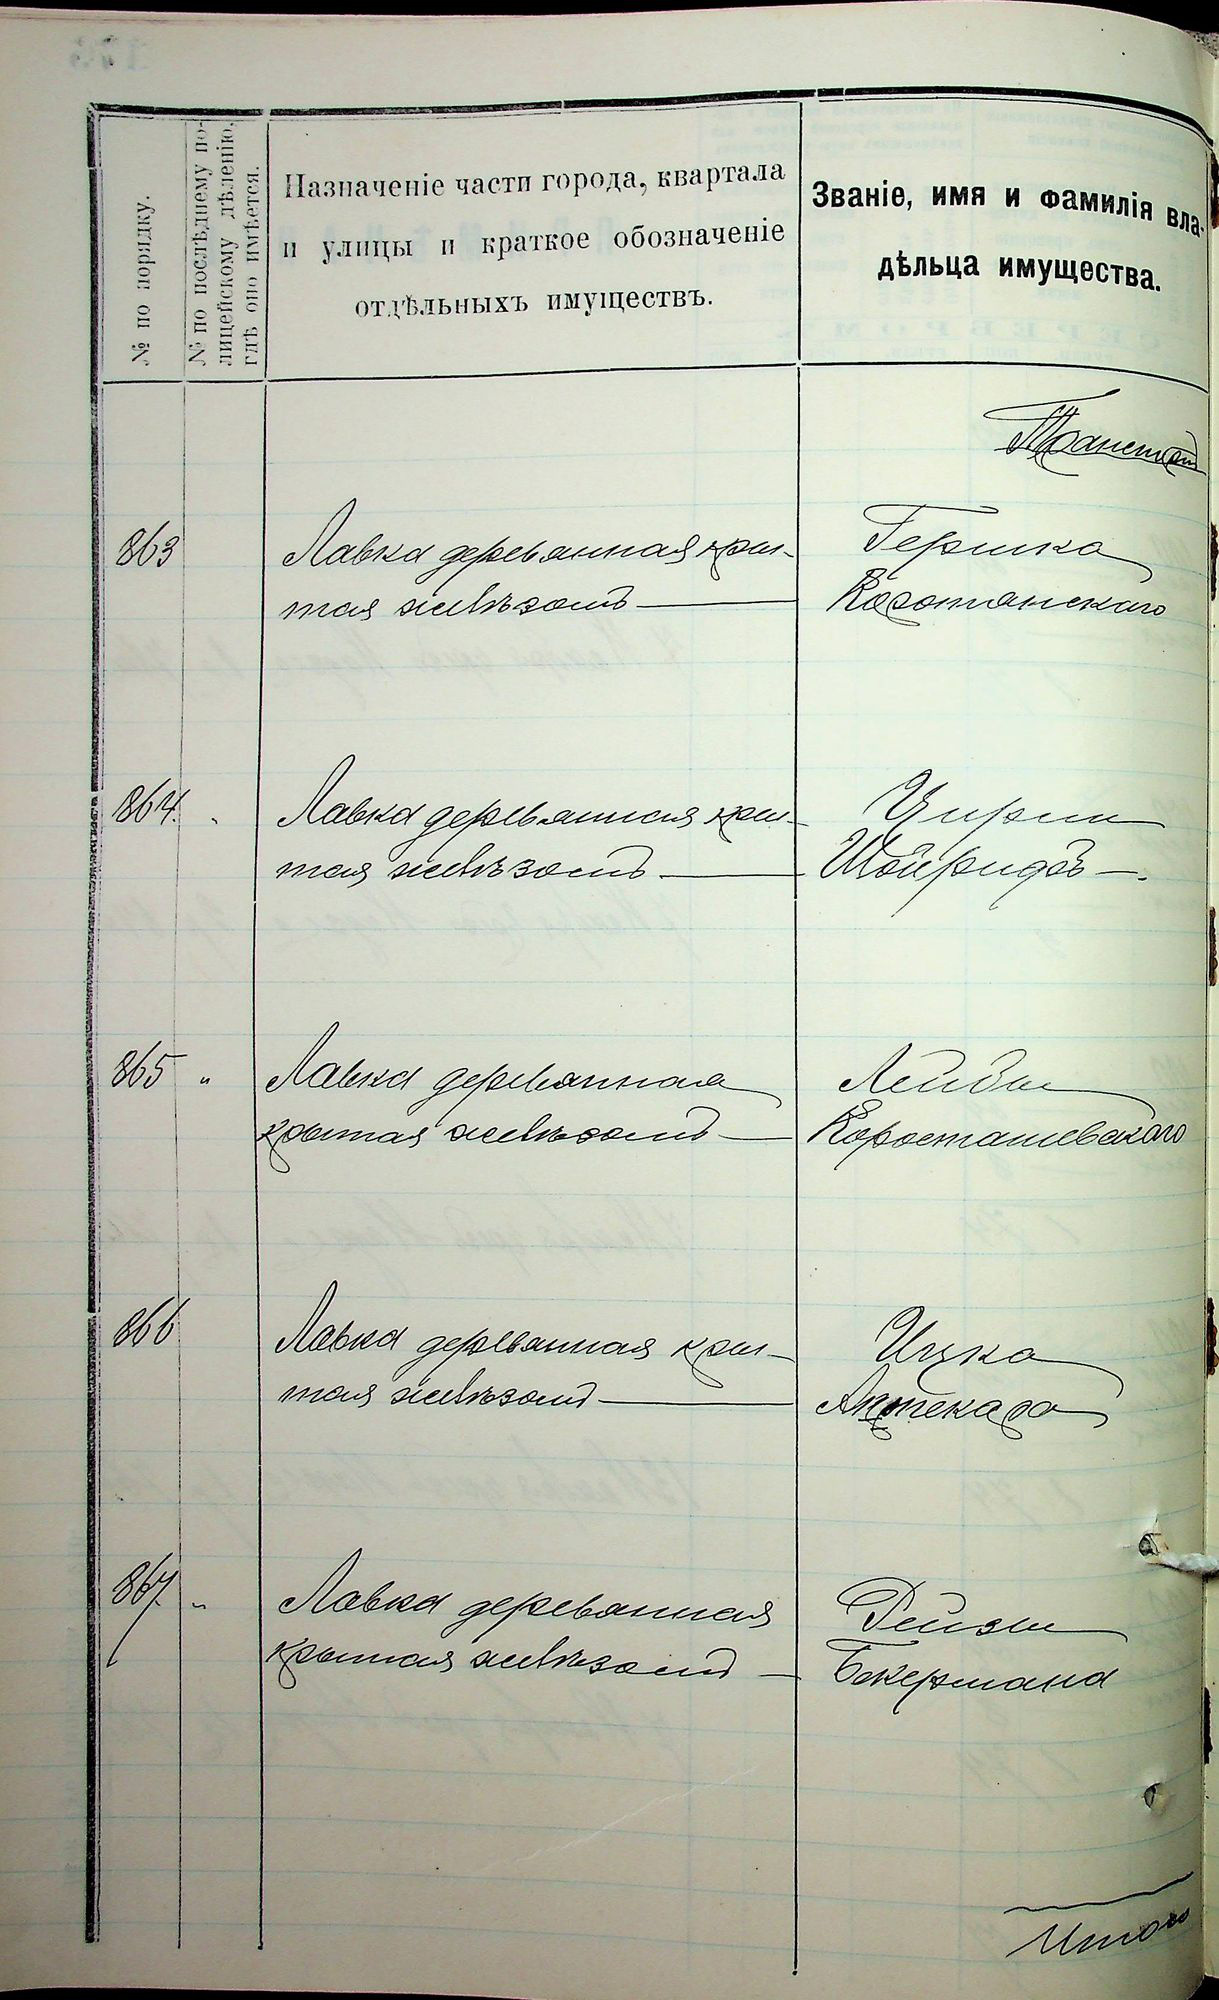 № по порядку.
№ по послѣднему по-
лицейскому дѣленію,
гдѣ оно имѣется.
Назначеніе части города, квартала
и улицы и краткое обозначеніе
отдѣльныхъ имуществъ.
Званіе, имя и фамилія вла-
дѣльца имущества.
Транспортъ
863
Лавка деревянная кры-
тая желѣзомъ
Гершка
864
Лавка деревянная кры-
тая желѣзомъ
Шойфридъ
865 "
Лавка деревянная
крытая желѣзомъ
Лейбы
Коросташевскаго
866
Лавка деревянная кры-
тая желѣзомъ
Ицка
Аптекаря
867 "
Лавка деревянная
крытая желѣзомъ
Рейзы
Бекермана
Итого